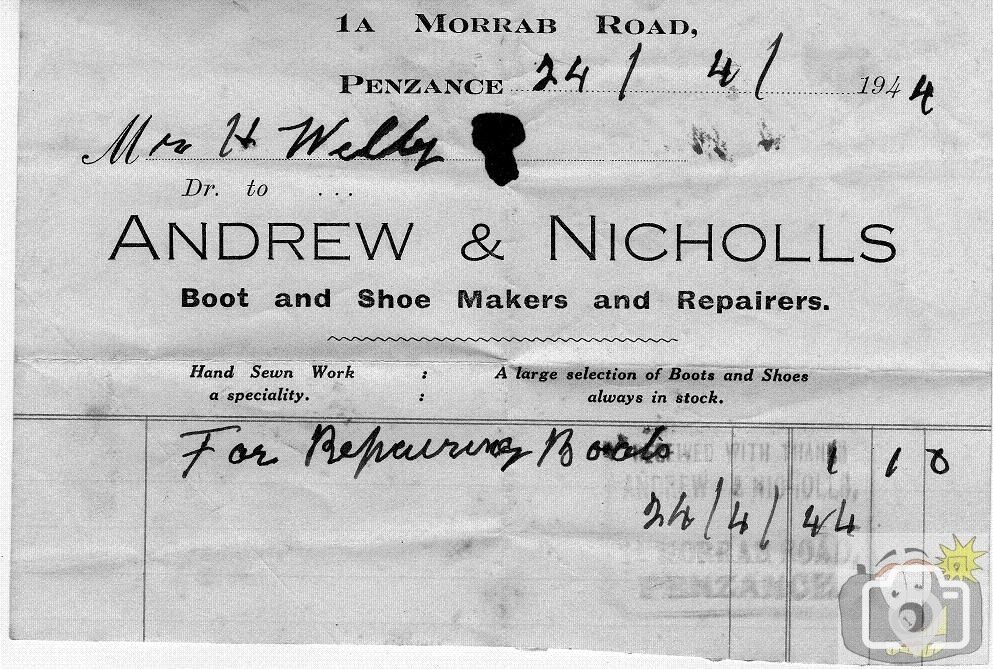 1A MORRAB ROAD,
PENZANCE 24 / 4 / 1944
Mrs H Welby
Dr. to ...
ANDREW & NICHOLLS
Boot and Shoe Makers and Repairers.
Hand Sewn Work : A large selection of Boots and Shoes
a speciality. : always in stock.
For Repairing Boots 1 1 0
RECEIVED WITH THANKS
ANDREW & NICHOLLS,
24/4/44
MORRAB ROAD,
PENZANCE.